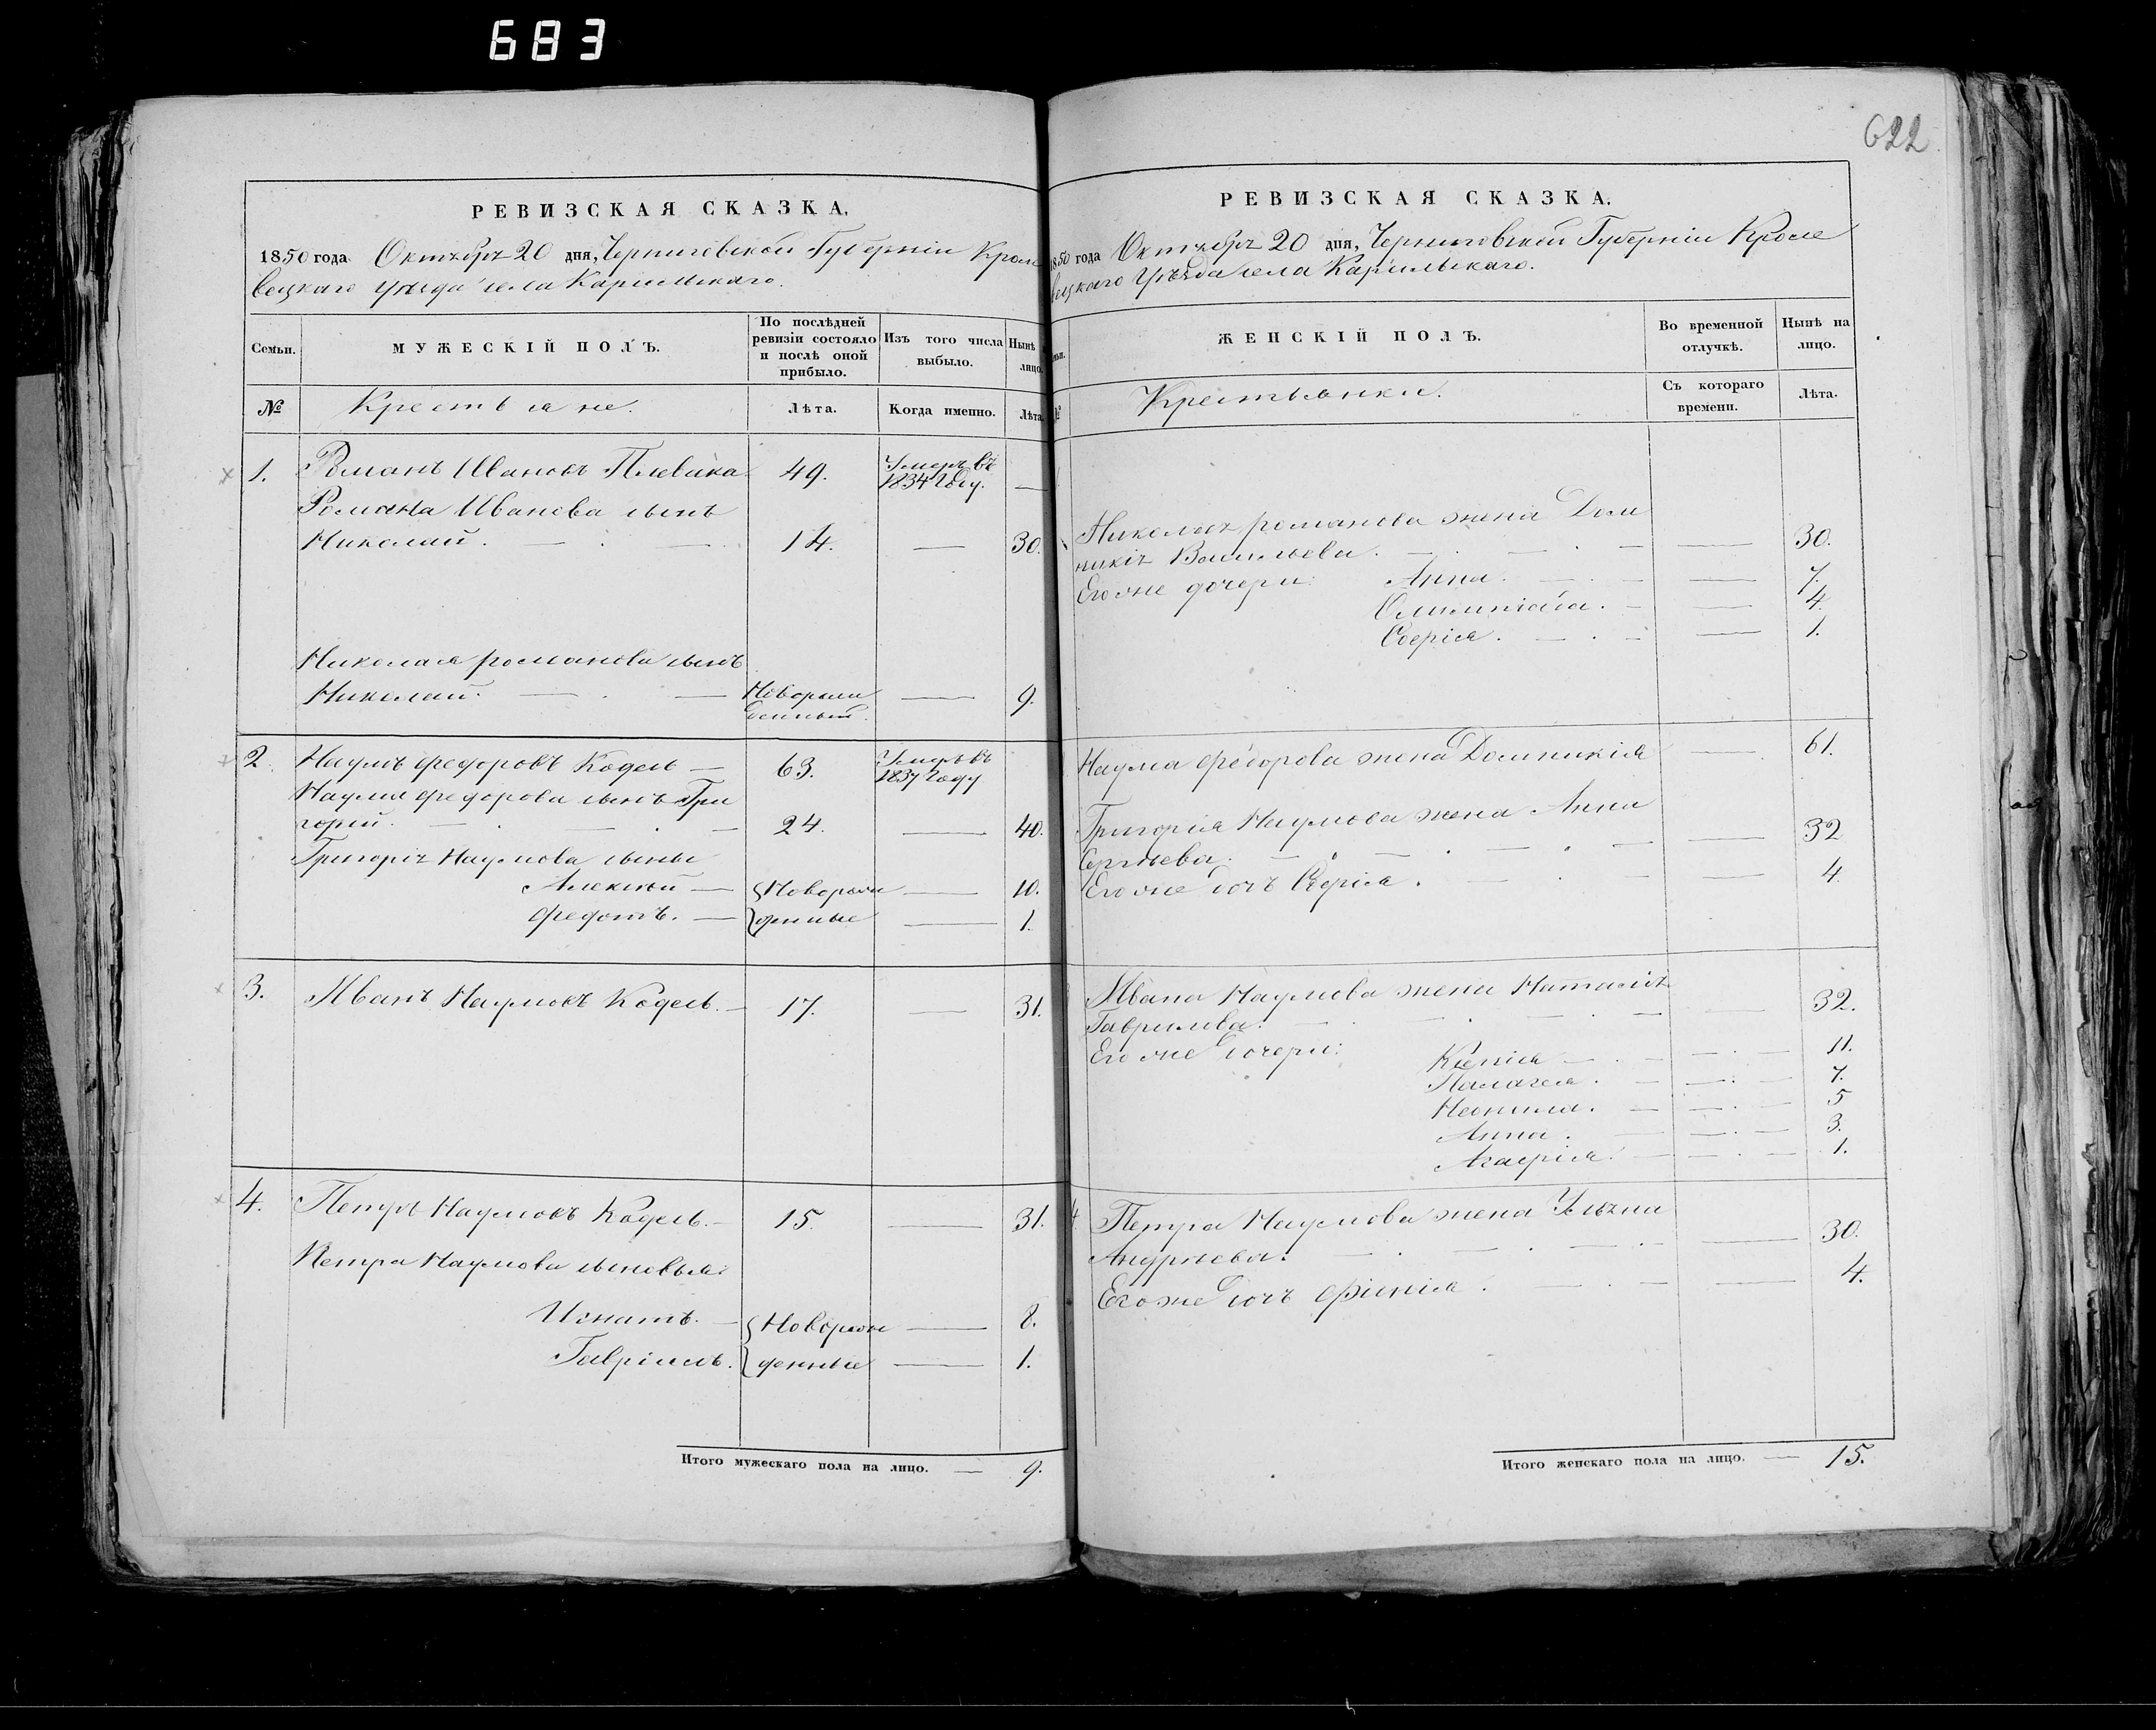 683
622
РЕВИЗСКАЯ СКАЗКА.
1850 года Октября 20 дня, Черниговской Губернiи Кроле
вецкаго уѣзда села Карильскаго.
Семьи.
МУЖЕСКIЙ ПОЛЪ.
По послѣдней ревизiи состояло и послѣ оной прибыло.
Изъ того числа выбыло.
Нынѣ лицо.
№
Крестьяне.
Лѣта.
Когда именно.
Лѣта
1. Романъ Ивановъ Плевака 49. Умеръ въ 1834 Году. —
Романа Иванова сынъ
Николай. — . — 14. — 30.
Николая романова сынъ
Николай. — . — Новорож денный. — 9.
2. Наумъ Федоровъ Кодель — 63. Умеръ въ 1837 Году
Наума Федорова сынъ Гри
горий. — . — . — 24. — 40.
Григорiя Наумова сыны
Алексѣй — Новорож — 10.
Федотъ. — денные — 1.
3. Иванъ Наумовъ Кодель. — 17. — 31.
4. Петръ Наумовъ Кодель. — 15. — 31.
Петра Наумова сыновья:
Игнатъ. — Новорож — 8.
Гаврiилъ. денные — 1.
Итого мужескаго пола на лицо. — 9.
РЕВИЗСКАЯ СКАЗКА.
1850 года Октября 20 дня, Черниговской Губернiи Кроле
вецкаго Уѣзда села Карильскаго.
ЖЕНСКIЙ ПОЛЪ.
Во временной отлучкѣ.
Нынѣ на лицо.
Крестьянки.
Съ котораго времени.
Лѣта.
Николая романова жена Дом
никiя Васильева. — . — . — — 30.
Его же дочери: Анна. — . — — 7.
Олимпiада. — — 4.
Софiя. — . — — 1.
Наума Федорова жена Домникiя — 61.
Григорiя Наумова жена Анна
Сергѣева. — . — . — . — — 32
Его же дочь Софiя. — . — — 4.
Ивана Наумова жена Наталiя
Гаврилова. — . — . — . — — 32.
Его же дочери: Ксенiя — . — — . — 11.
Палагея. — — . — 7.
Неонила. — — . — 5
Анна. — — . — 3.
Агафiя. — — . — 1.
4 Петра Наумова жена Ульяна
Андрѣева. — . — . — . — — 30.
Его же дочь Фiенiя. — . — — 4.
Итого женскаго пола на лицо. — 15.